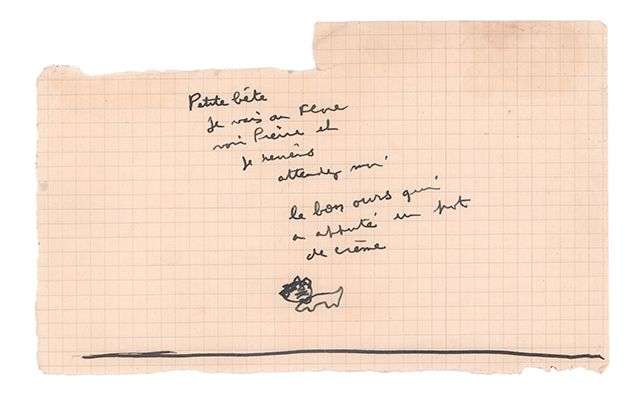 Petite bête
Je vais au Flore
voir Pierre et
Je reviens
attendez moi
le bon ours qui
a apporté un pot
de crème